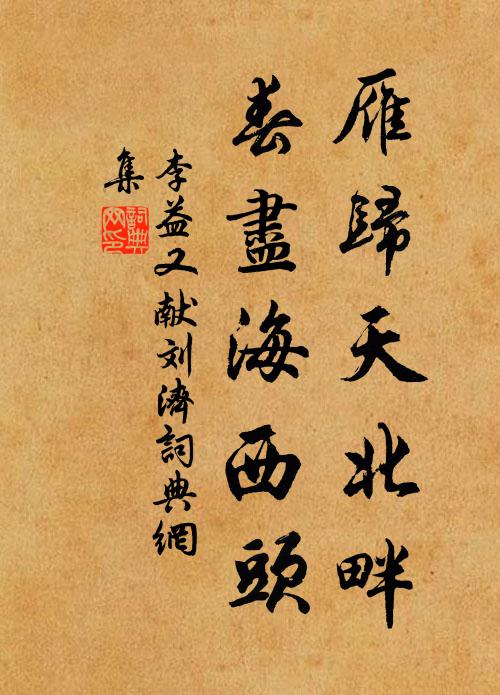 雁歸天北畔
春盡海西頭
李益又献刘濟詞典網
集
詞典網印